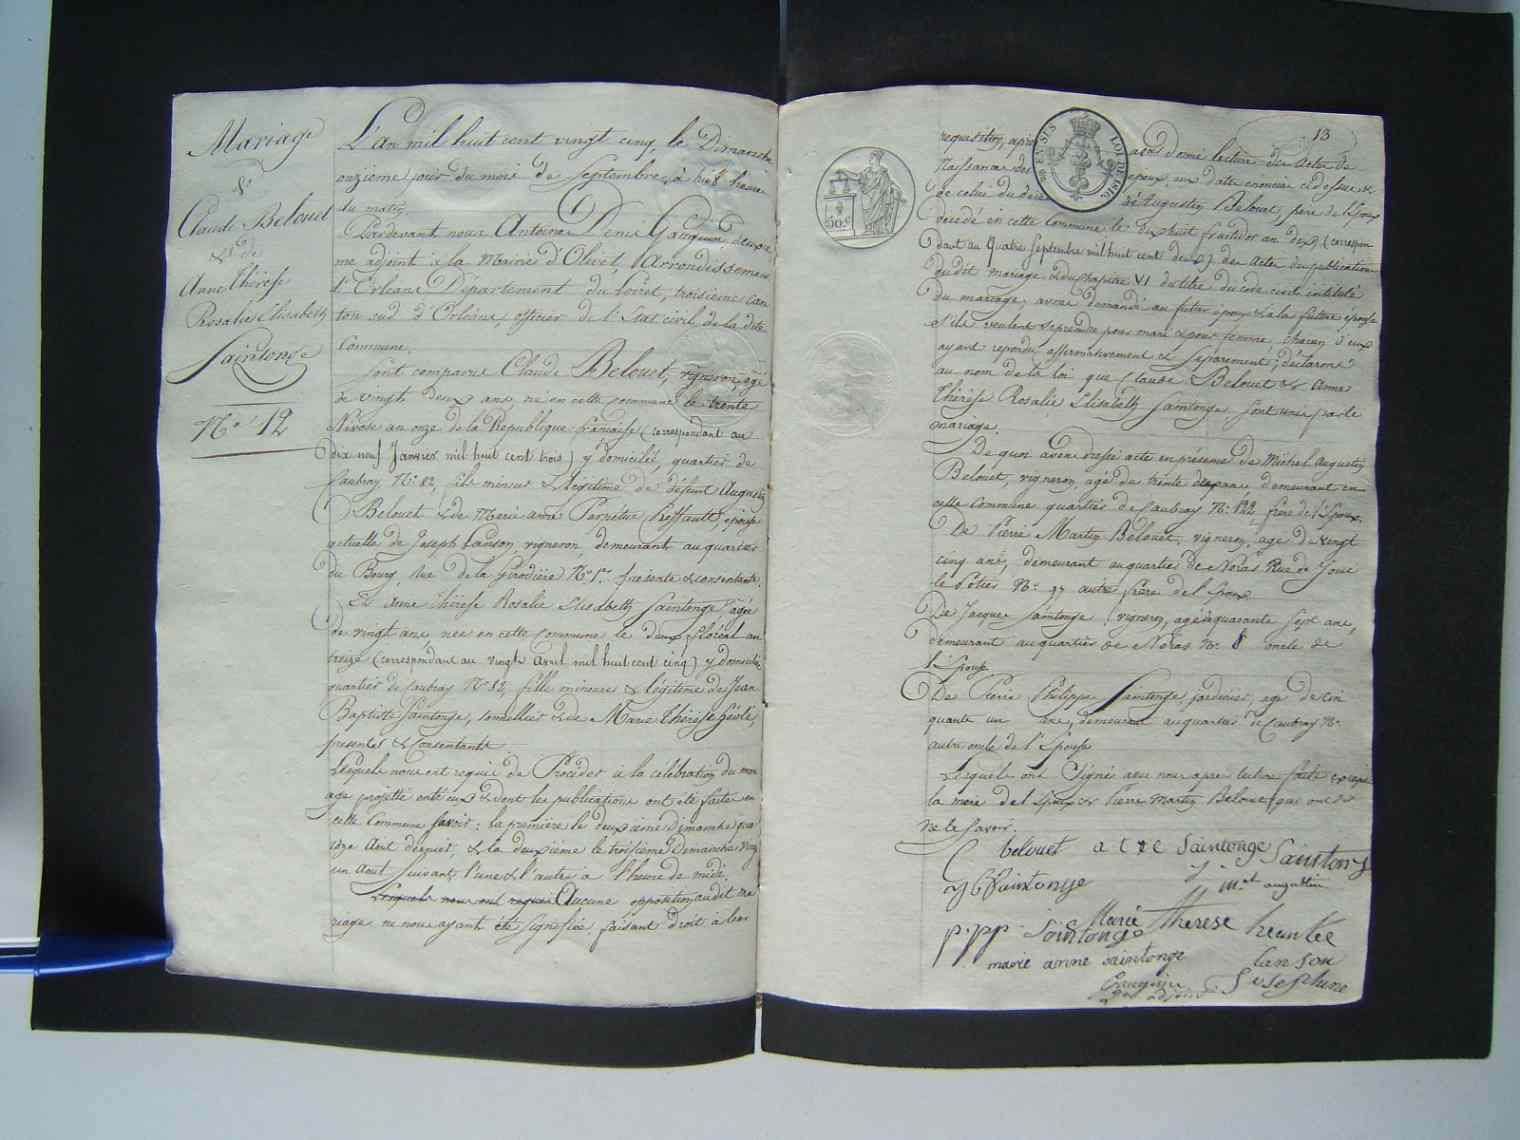 Mariage
de
Claude Belouet
& de
Anne Thérèse
Rosalie Elisabeth
Saintonge
N.º 12
L'an mil huit cent vingt cinq le Dimanche
onzieme jour du mois de Septembre, à huit heure
du matin,
Pardevant nous Antoine Denis Gauguin, deuxie
me adjoint à la Mairie d'Olivet, Arrondissement
d'Orléans Département du Loiret, troisieme can
ton sud d'Orléans, officier de l'Etat civil de la dite
Commune,
Sont comparus Claude Belouet, vigneron, agé
de vingt deux ans, né en cette commune le trente
Nivose an onze de la République française (correspondant au
dix neuf Janvier mil huit cent trois) y domicilié, quartier de
Caubray N.º 82, fils mineur & légitime de défunt Augustin
Belouet & de Marie Anne Perpétue Riffault, épouse
actuelle de Joseph Lanson, vigneron, demeurant au quartier
du Bourg, rue de la Girodière N.º 1.er présente & consentante.
Et Anne Thérèse Rosalie Elisabeth Saintonge, agée
de vingt ans, née en cette commune le deux floréal an
treize (correspondant au vingt Avril mil huit cent cinq) y domiciliée
quartier de Caubray N.º 82, fille mineure & légitime de Jean
Baptiste Saintonge, tonnellier & de Marie Thérèse
presents & consentants.
Lesquels nous ont requis de Procéder à la célébration du mari
age projetté entre eux & dont les publications ont été faites en
cette Commune Savoir: la première le deuxieme dimanche qua
torze Aout dernier, & la deuxième le troisieme Dimanche vingt
un Aout suivant l'une & l'autre à l'heure de midi.
Lesquels nous ont requis Aucune opposition audit ma
riage ne nous ayant été signifiée, faisant droit à leur
13
requisition, après avoir donné lecture des actes de
Naissance des époux, aux dates énoncées cidessus &
de celui du décès de Augustin Belouet, père de l'Epoux
décédé en cette Commune le dix huit fructidor an dix (correspon
dant au Quatre Septembre mil huit cent deux), des actes de publication
dudit mariage & du Chapitre VI du titre du code civil intitulé
du mariage, avons demandé au futur époux & à la future épouse
s'ils veulent se prendre pour mari & pour femme, chacun d'eux
ayant repondu affirmativement & séparement, déclarons
au nom de la loi que Claude Belouet & Anne
Thérèse Rosalie Elisabeth Saintonge sont unis par le
mariage.
De quoi avons dressé acte en présence de Michel Augustin
Belouet, vigneron, agé de trente demeurant en
cette Commune quartier de Caubray N.º 122, frère de l'Epoux,
De Pierre Martin Belouet, vigneron, agé de vingt
cinq ans, demeurant au quartier de Noras Rue de
le Potier N.º 97 autre frère de l'Epoux
De Jacques Saintonge, vigneron, agé de quarante sept ans,
demeurant au quartier de Noras N.º 8 oncle de
l'Epouse
De Pierre Philippe Saintonge, jardinier, agé de cin
quante un ans, demeurant au quartier de Caubray N.º
autre oncle de l'Epouse
Lesquels ont signé avec nous après lecture faite excepté
la mère de l'Epoux & Pierre Martin Belouet qui ont dit
ne le savoir.
belouet a t r e Saintonge Saintonge
J b Saintonge m.el augustin
p. pp. Saintonge Marie Therese
marie anne saintonge lanson
Gauguin Josephine
adjoint
LOI DE 1816
50 C